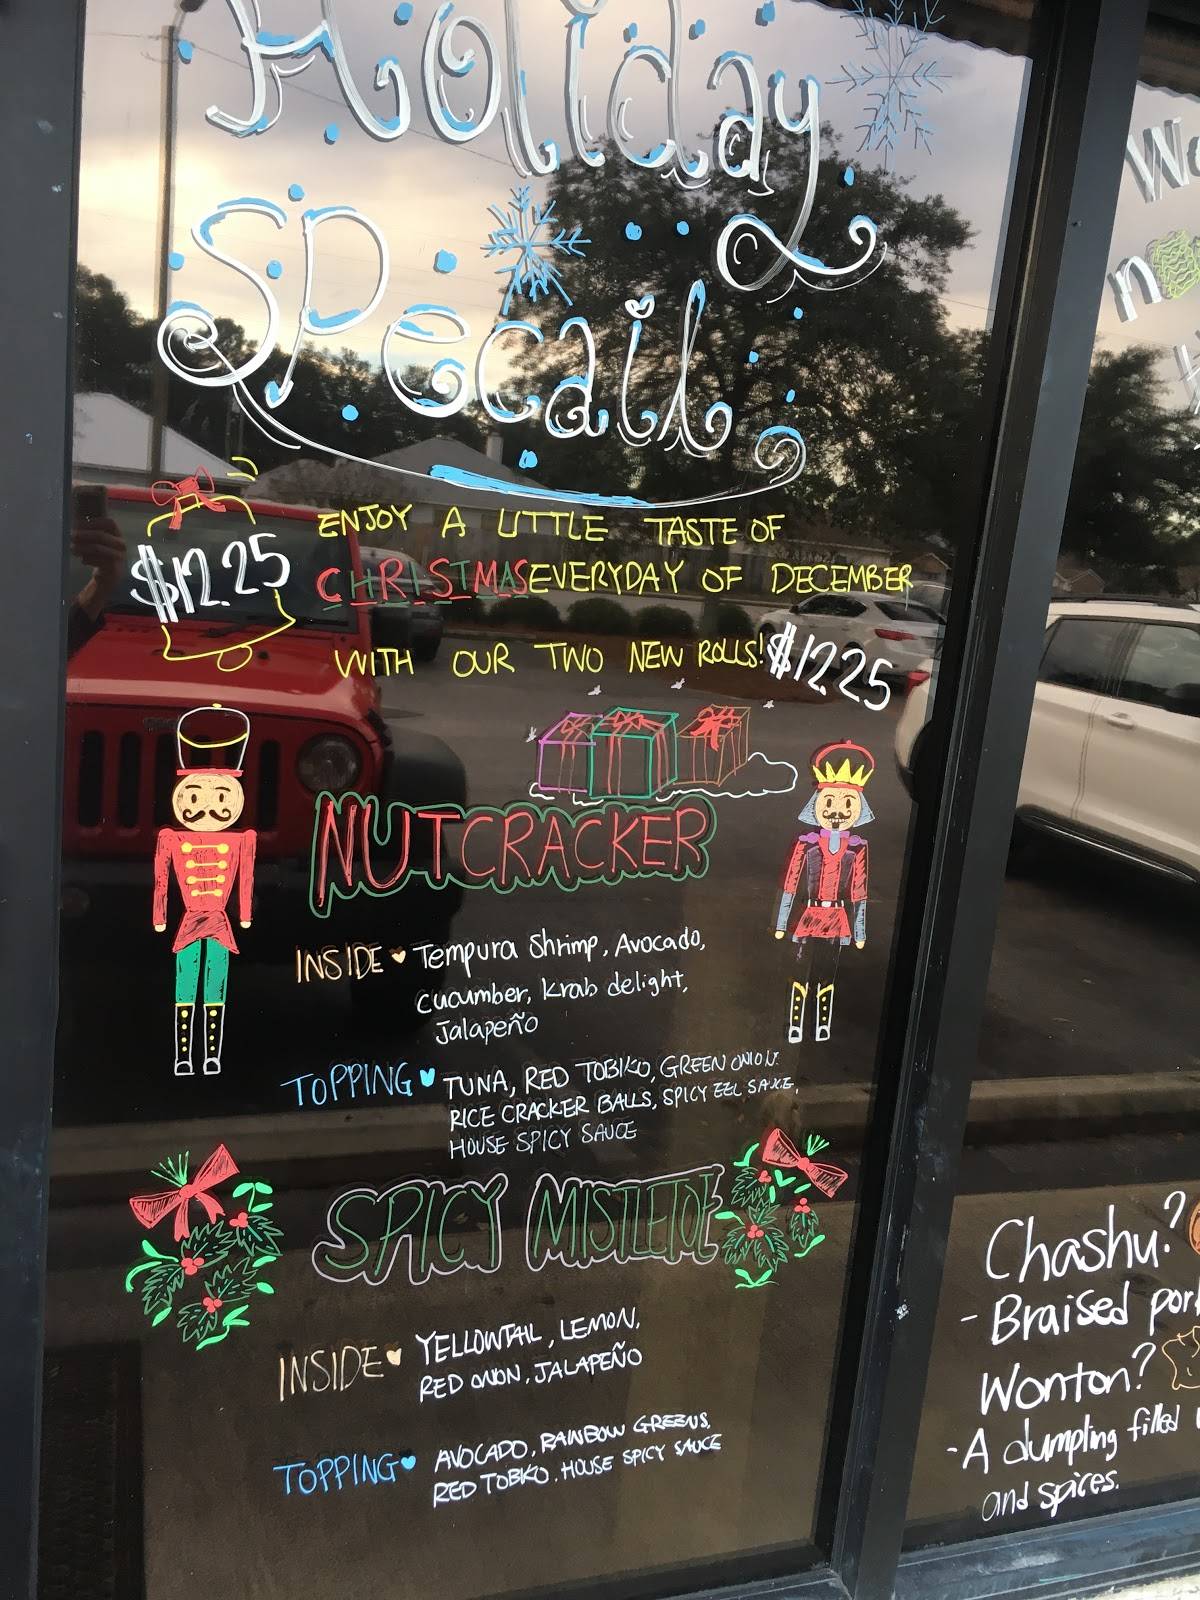 Holiday
SPecail
ENJOY A LITTLE TASTE OF
$12.25
CHRISTMAS EVERYDAY OF DECEMBER
WITH OUR TWO NEW ROLLS!
$12.25
NUTCRACKER
INSIDE Tempura Shrimp, Avocado,
cucumber, Krab delight,
Jalapeño
TOPPING TUNA, RED TOBIKO, GREEN ONION.
RICE CRACKER BALLS, SPICY EEL SAUCE,
HOUSE SPICY SAUCE
SPICY MISTLETOE
INSIDE YELLOWTAIL, LEMON,
RED ONION, JALAPEÑO
TOPPING AVOCADO, RAINBOW GREENS,
RED TOBIKO. HOUSE SPICY SAUCE
Chashu?
- Braised
Wonton?
- A dumpling filled
and spices.